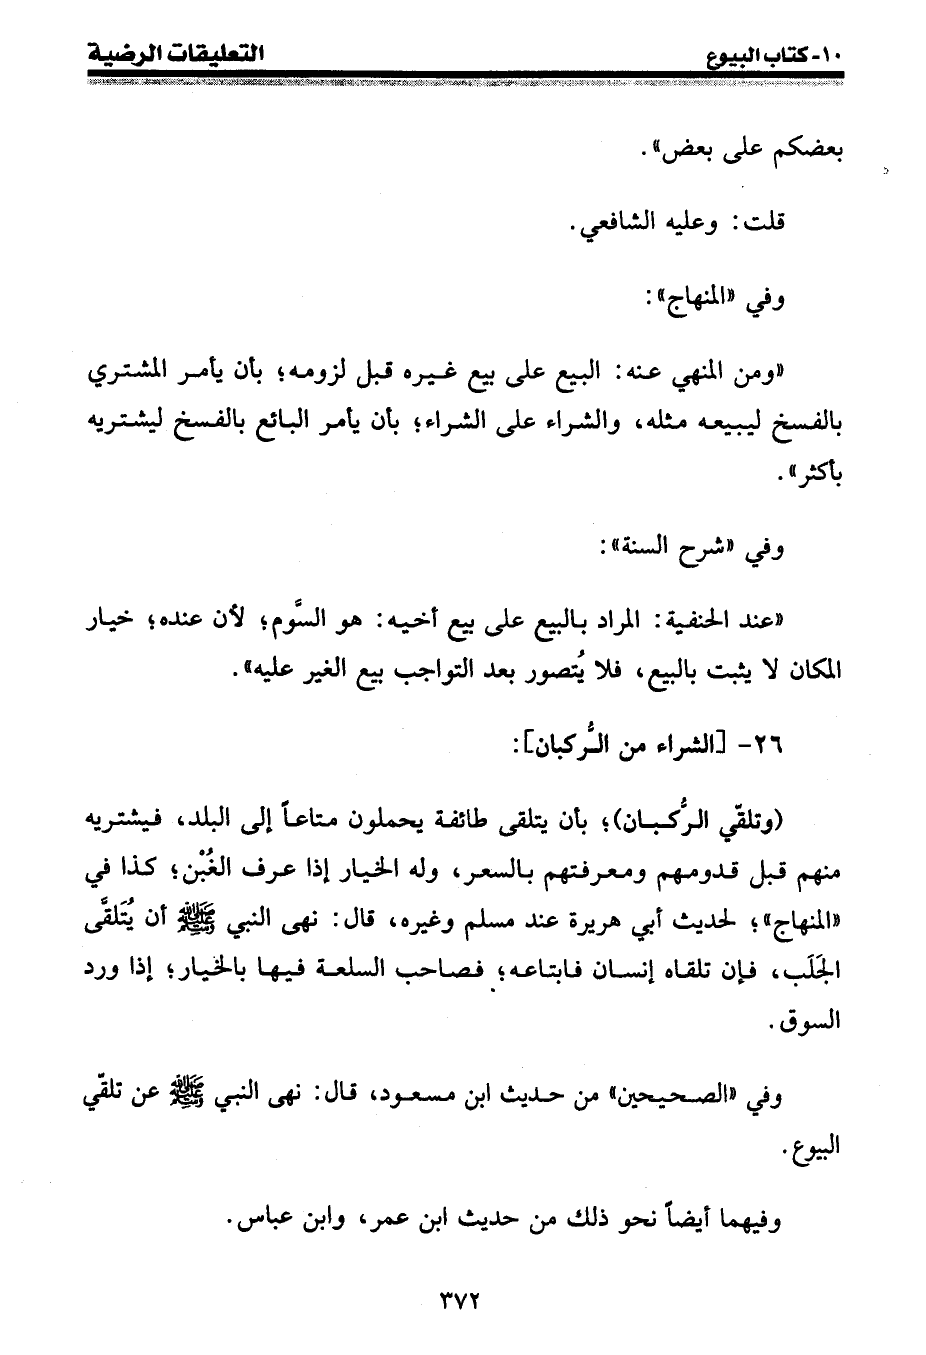 ١٠- كتاب البيوع التعليقات الرضية
بعضكم على بعض».
قلت: وعليه الشافعي.
وفي «المنهاج»:
«ومن المنهي عنه: البيع على بيع غيره قبل لزومه؛ بأن يأمر المشتري
بالفسخ ليبيعه مثله، والشراء على الشراء؛ بأن يأمر البائع بالفسخ ليشتريه
بأكثر».
وفي «شرح السنة»:
«عند الحنفية: المراد بالبيع على بيع أخيه: هو السَّوم؛ لأن عنده؛ خيار
المكان لا يثبت بالبيع، فلا يُتصور بعد التواجب بيع الغير عليه».
٢٦- [الشراء من الرُّكبان]:
(وتلقّي الرُّكبان)؛ بأن يتلقى طائفة يحملون متاعاً إلى البلد، فيشتريه
منهم قبل قدومهم ومعرفتهم بالسعر، وله الخيار إذا عرف الغُبْن؛ كذا في
«المنهاج»؛ لحديث أبي هريرة عند مسلم وغيره، قال: نهى النبي ﷺ أن يُتَلقَّى
الجَلَب، فإن تلقاه إنسان فابتاعه؛ فصاحب السلعة فيها بالخيار؛ إذا ورد
السوق.
وفي «الصحيحين» من حديث ابن مسعود، قال: نهى النبي ﷺ عن تلقّي
البيوع.
وفيهما أيضاً نحو ذلك من حديث ابن عمر، وابن عباس.
٣٧٢